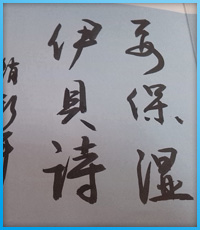 要保湿
伊貝詩